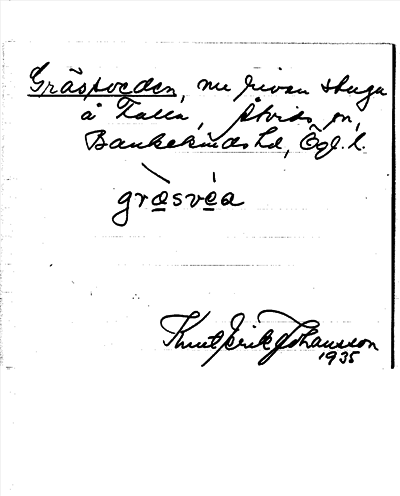 Gräsveden, nu riven stuga
å Talla, Åtvids sn,
Bankekinds hd, Ögl. l.
gräsvéa
Knut Erik Johansson
1935